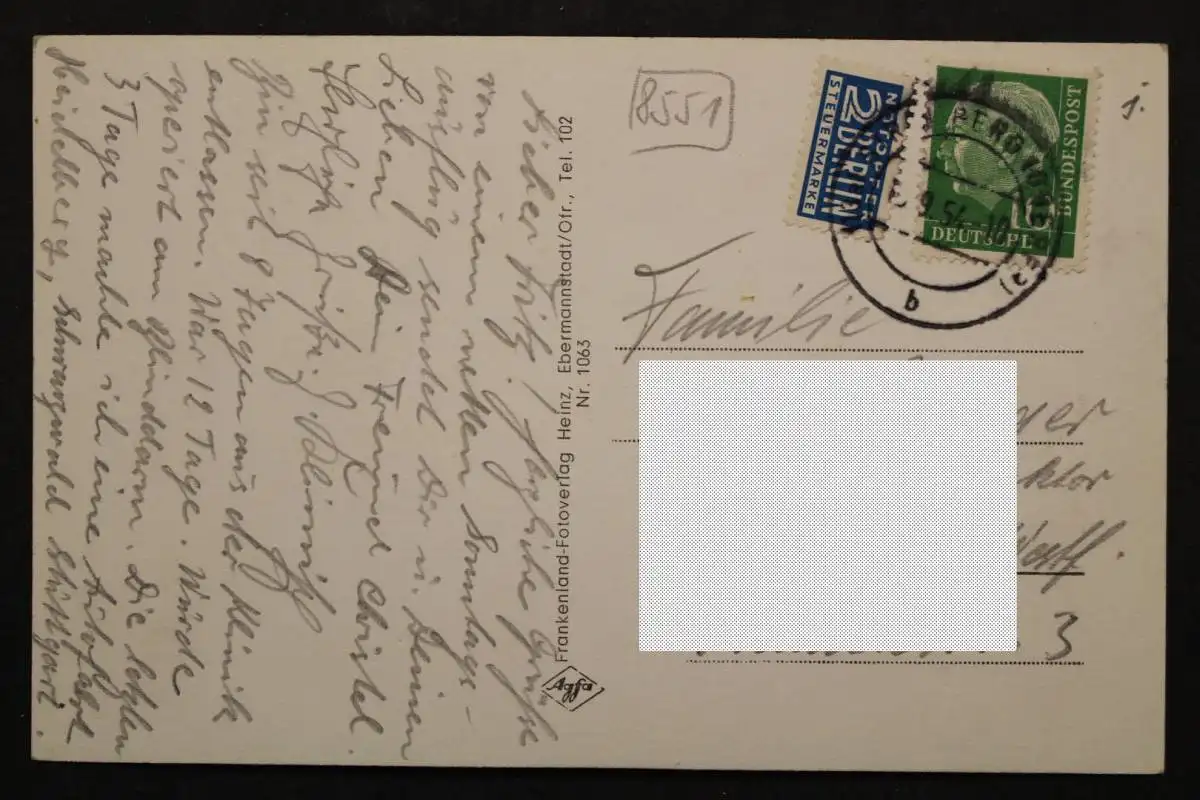 Lieber Fritz! Herzliche Grüße
von einem netten Sonntags-
ausflug sendet Dir u. Deinen
Lieben Dein Freund Christel.
Herzlich grüßt
Bin seit 8 Tagen aus der Klinik
entlassen. War 12 Tage. Wurde
operiert am Blinddarm. Die letzten
3 Tage machte ich eine Autofahrt
Heidelberg, Schwarzwald Stuttgart.
Frankenland-Fotoverlag Heinz, Ebermannstadt/Ofr., Tel. 102
Nr. 1063
Agfa
8551
NOTOPFER
2 BERLIN
STEUERMARKE
DEUTSCHE
BUNDESPOST
10
9.54.-10
b
Familie
3